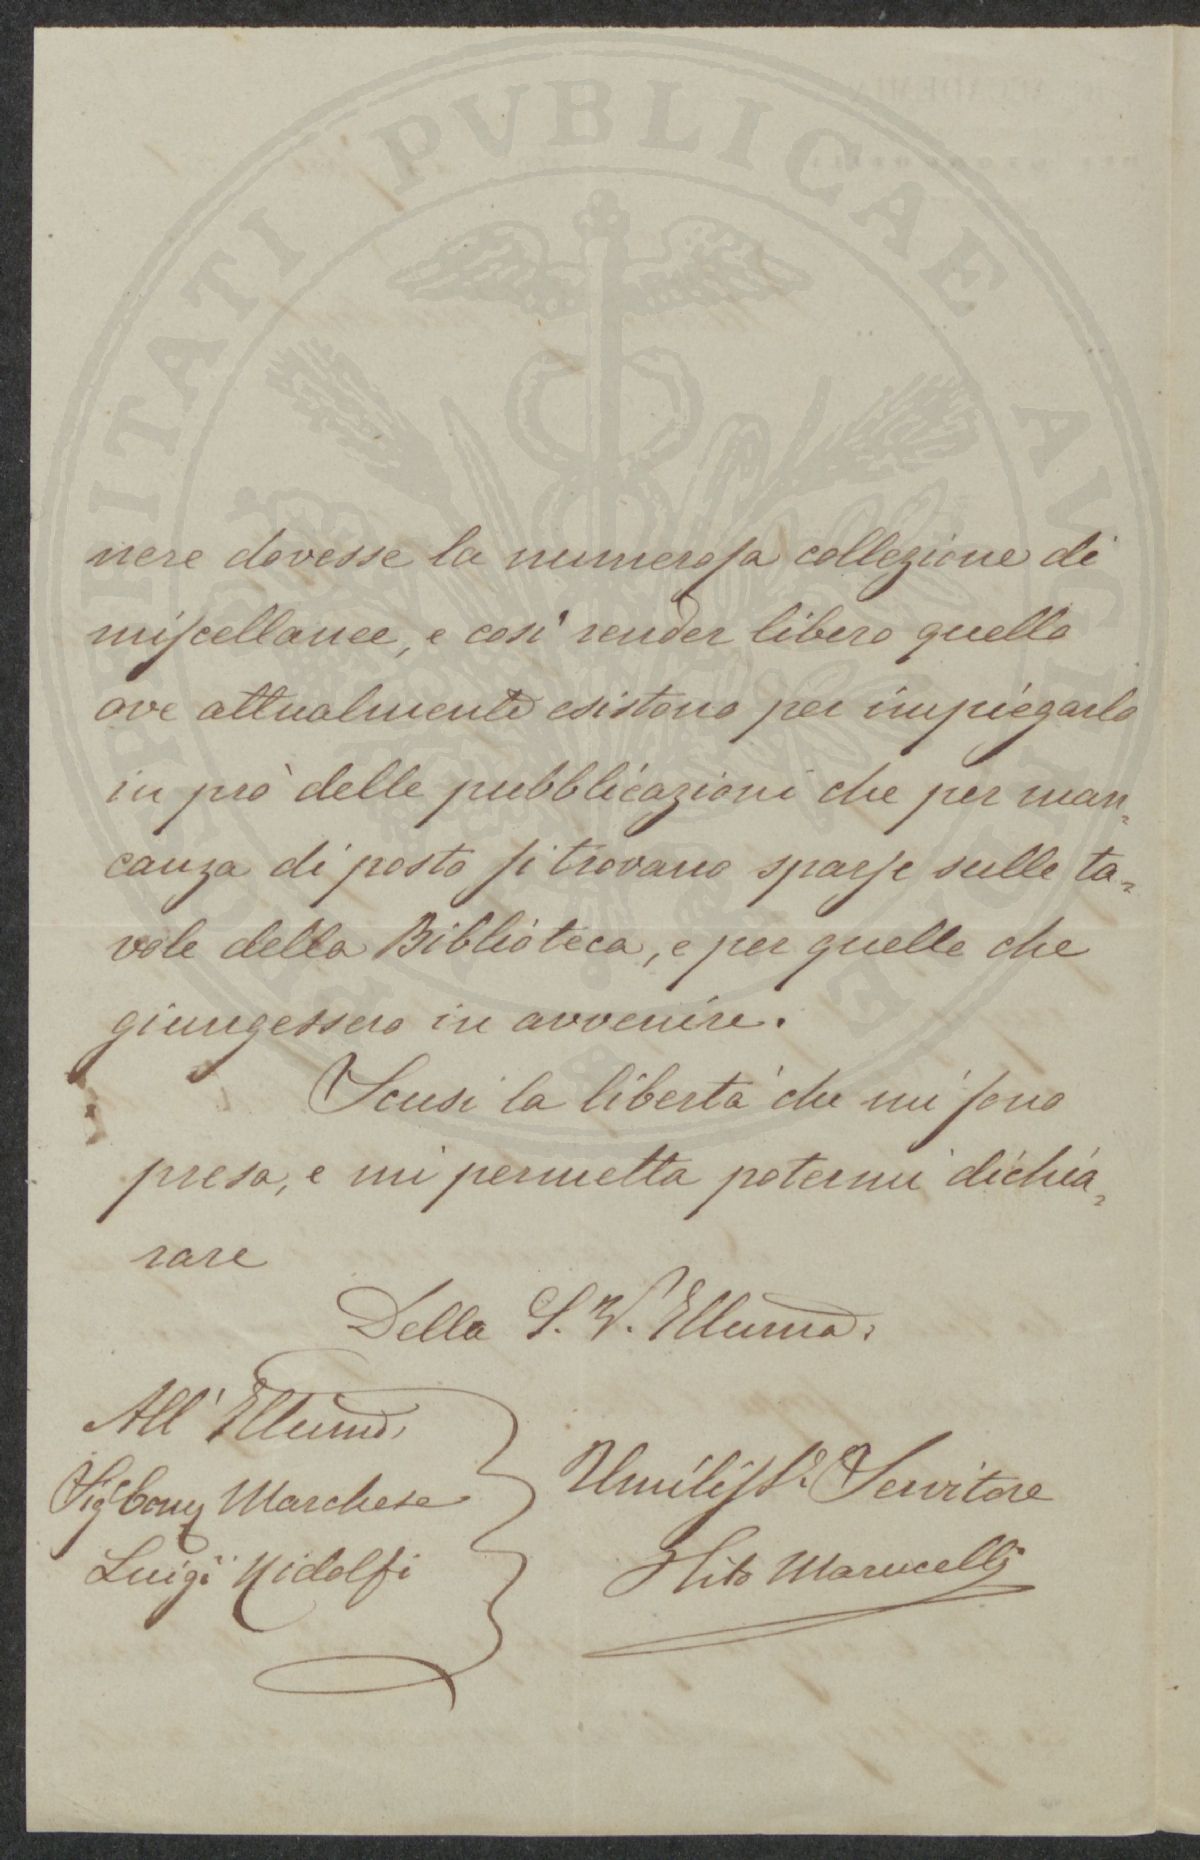 PROSPERITATI PVBLICAE AVGENDAE
nere dovesse la numerosa collezione di
miscellanee, e così render libero quello
ove attualmente esistono per impiegarlo
in prò delle pubblicazioni che per man=
canza di posto si trovano sparse sulle ta=
vole della Biblioteca, e per quelle che
giungessero in avvenire.
Scusi la libertà che mi sono
presa, e mi permetta potermi dichia=
rare
Della S. V. Illuma.
All' Illumo.
Sigr Marchese
Luigi Ridolfi
Umiliss.o Servitore
Marucelli